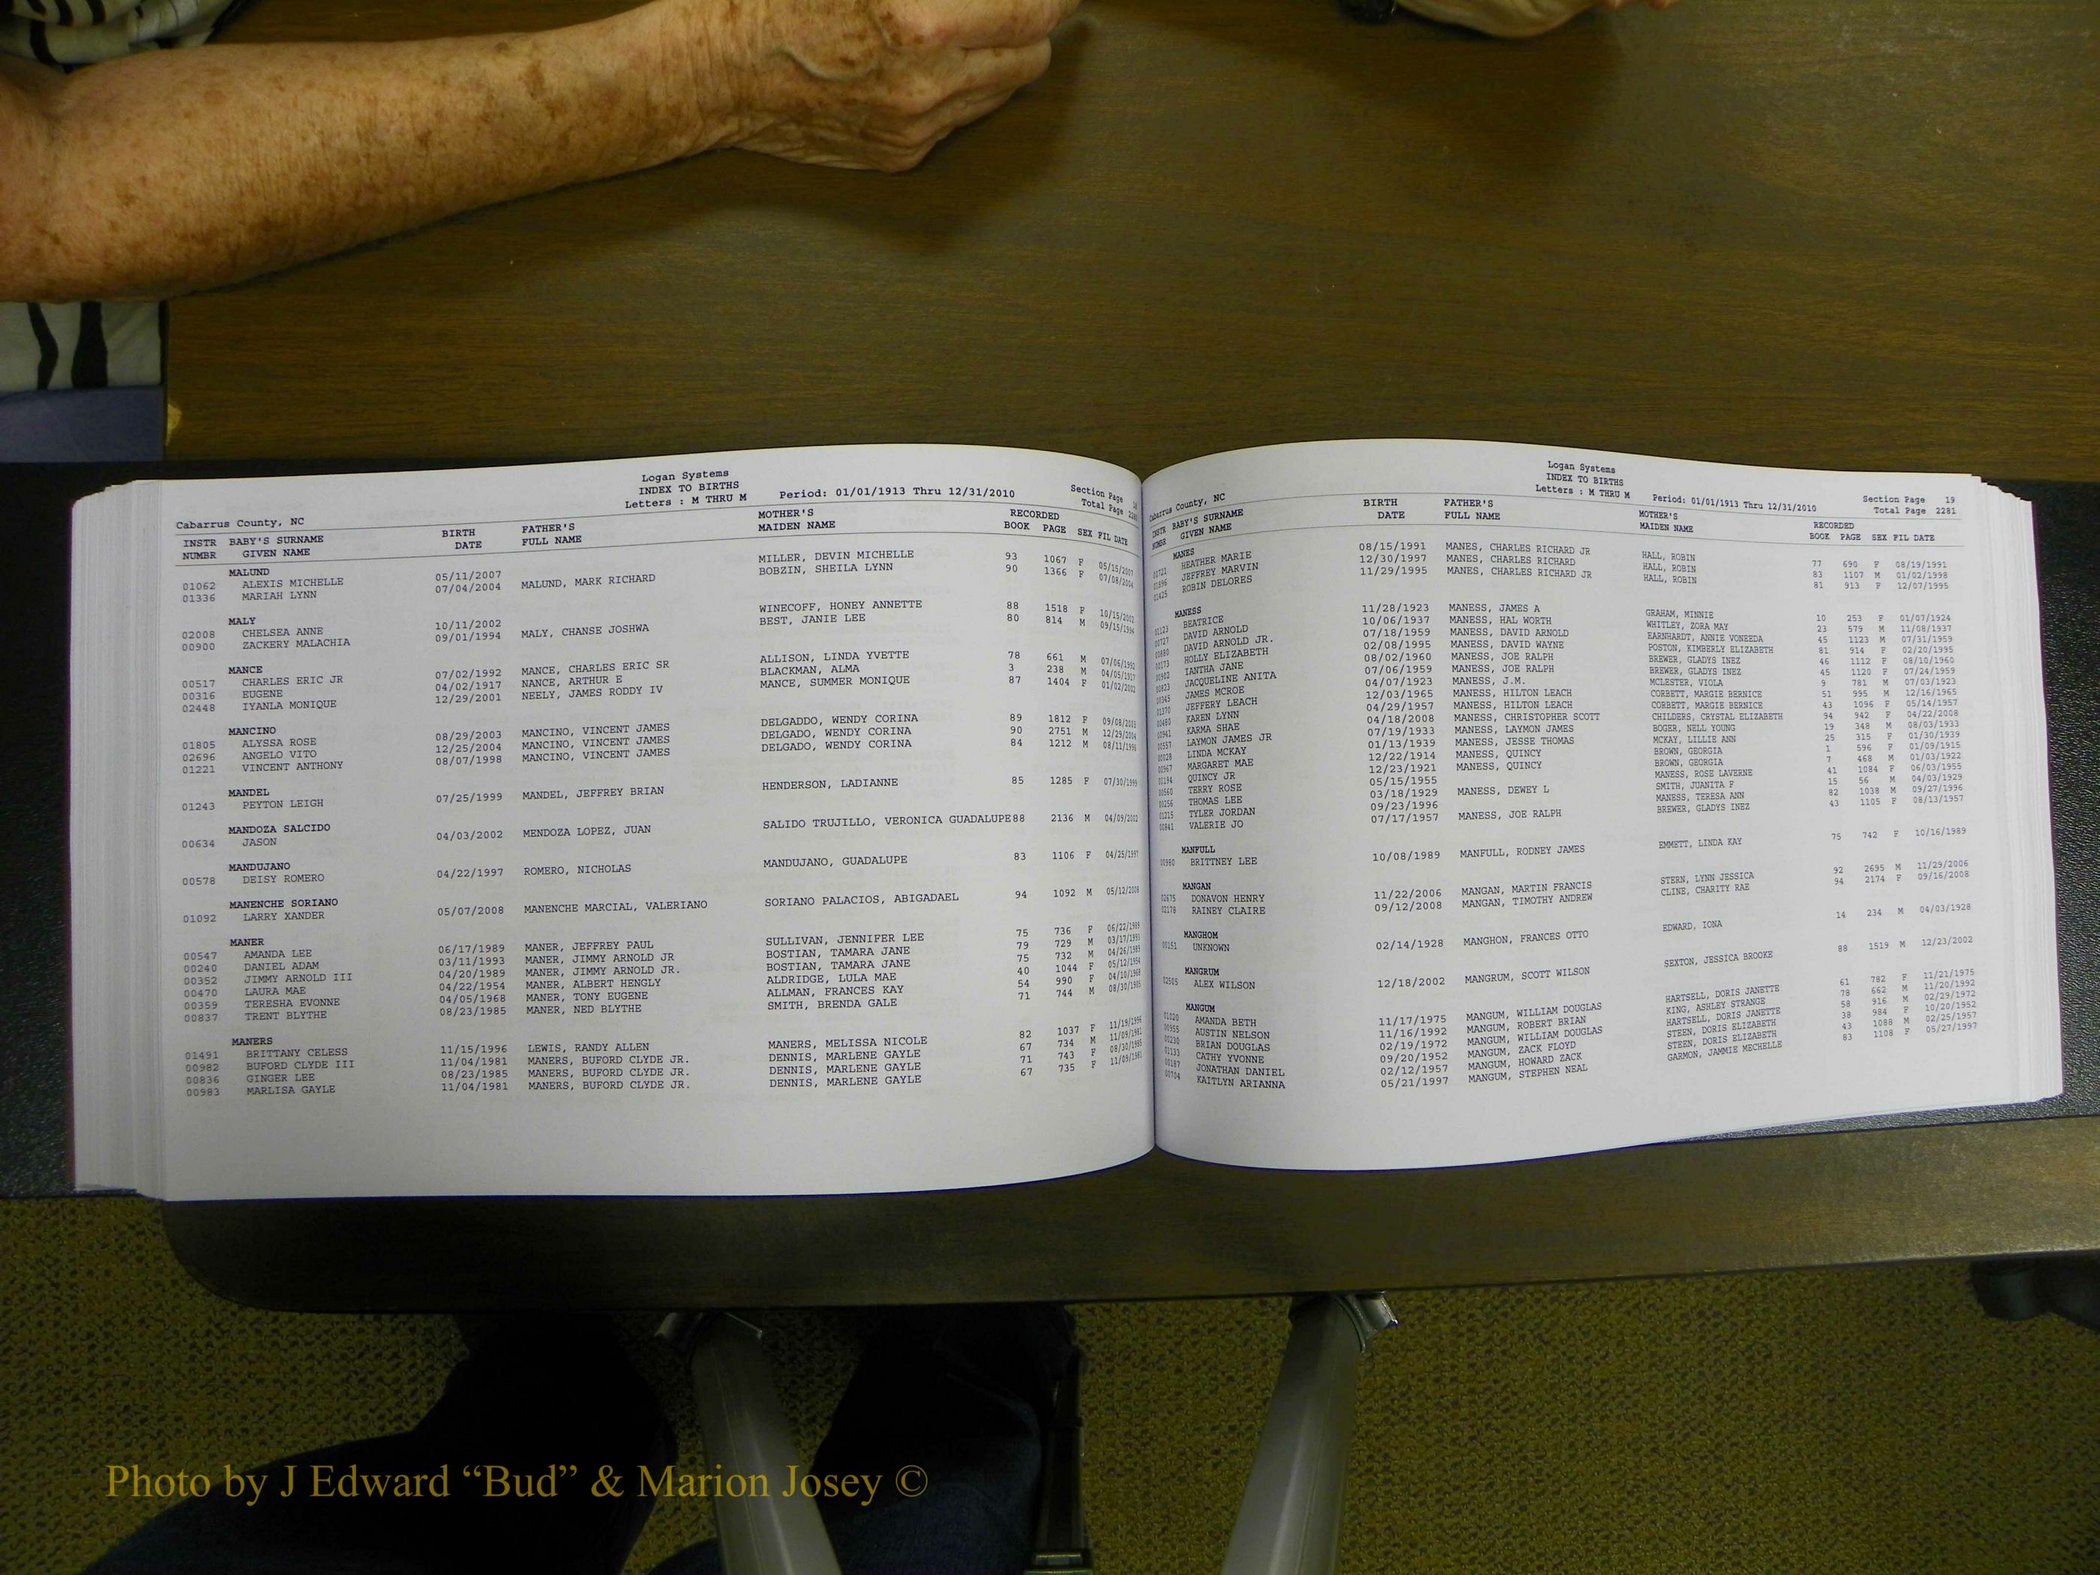 Logan Systems
INDEX TO BIRTHS
Letters : M THRU M Period: 01/01/1913 Thru 12/31/2010 Section Page
Cabarrus County, NC Total Page
INSTR BABY'S SURNAME BIRTH FATHER'S MOTHER'S RECORDED
NUMBR GIVEN NAME DATE FULL NAME MAIDEN NAME BOOK PAGE SEX FIL DATE
MALUND
01062 ALEXIS MICHELLE 05/11/2007 MILLER, DEVIN MICHELLE 93 1067 F 05/15/2007
01336 MARIAH LYNN 07/04/2004 MALUND, MARK RICHARD BOBZIN, SHEILA LYNN 90 1366 F 07/08/2004
MALY
02008 CHELSEA ANNE 10/11/2002 WINECOFF, HONEY ANNETTE 88 1518 F 10/15/2002
00900 ZACKERY MALACHIA 09/01/1994 MALY, CHANSE JOSHWA BEST, JANIE LEE 80 814 M 09/15/1994
MANCE
00517 CHARLES ERIC JR 07/02/1992 MANCE, CHARLES ERIC SR ALLISON, LINDA YVETTE 78 661 M 07/06/1992
00316 EUGENE 04/02/1917 NANCE, ARTHUR E BLACKMAN, ALMA 3 238 M 04/05/1917
02448 IYANLA MONIQUE 12/29/2001 NEELY, JAMES RODDY IV MANCE, SUMMER MONIQUE 87 1404 F 01/02/2002
MANCINO
01805 ALYSSA ROSE 08/29/2003 MANCINO, VINCENT JAMES DELGADDO, WENDY CORINA 89 1812 F 09/08/2003
02696 ANGELO VITO 12/25/2004 MANCINO, VINCENT JAMES DELGADO, WENDY CORINA 90 2751 M 12/29/2004
01221 VINCENT ANTHONY 08/07/1998 MANCINO, VINCENT JAMES DELGADO, WENDY CORINA 84 1212 M 08/11/1998
MANDEL
01243 PEYTON LEIGH 07/25/1999 MANDEL, JEFFREY BRIAN HENDERSON, LADIANNE 85 1285 F 07/30/1999
MANDOZA SALCIDO
00634 JASON 04/03/2002 MENDOZA LOPEZ, JUAN SALIDO TRUJILLO, VERONICA GUADALUPE88 2136 M 04/09/2002
MANDUJANO
00578 DEISY ROMERO 04/22/1997 ROMERO, NICHOLAS MANDUJANO, GUADALUPE 83 1106 F 04/25/1997
MANENCHE SORIANO
01092 LARRY XANDER 05/07/2008 MANENCHE MARCIAL, VALERIANO SORIANO PALACIOS, ABIGADAEL 94 1092 M 05/12/2008
MANER
00547 AMANDA LEE 06/17/1989 MANER, JEFFREY PAUL SULLIVAN, JENNIFER LEE 75 736 F 06/22/1989
00240 DANIEL ADAM 03/11/1993 MANER, JIMMY ARNOLD JR BOSTIAN, TAMARA JANE 79 729 M 03/17/1993
00352 JIMMY ARNOLD III 04/20/1989 MANER, JIMMY ARNOLD JR. BOSTIAN, TAMARA JANE 75 732 M 04/26/1989
00470 LAURA MAE 04/22/1954 MANER, ALBERT HENGLY ALDRIDGE, LULA MAE 40 1044 F 05/12/1954
00359 TERESHA EVONNE 04/05/1968 MANER, TONY EUGENE ALLMAN, FRANCES KAY 54 990 F 04/10/1968
00837 TRENT BLYTHE 08/23/1985 MANER, NED BLYTHE SMITH, BRENDA GALE 71 744 M 08/30/1985
MANERS
01491 BRITTANY CELESS 11/15/1996 LEWIS, RANDY ALLEN MANERS, MELISSA NICOLE 82 1037 F 11/19/1996
00982 BUFORD CLYDE III 11/04/1981 MANERS, BUFORD CLYDE JR. DENNIS, MARLENE GAYLE 67 734 M 11/09/1981
00836 GINGER LEE 08/23/1985 MANERS, BUFORD CLYDE JR. DENNIS, MARLENE GAYLE 71 743 F 08/30/1985
00983 MARLISA GAYLE 11/04/1981 MANERS, BUFORD CLYDE JR. DENNIS, MARLENE GAYLE 67 735 F 11/09/1981
Logan Systems
INDEX TO BIRTHS
Letters : M THRU M Period: 01/01/1913 Thru 12/31/2010 Section Page 19
Cabarrus County, NC Total Page 2281
INSTR BABY'S SURNAME BIRTH FATHER'S MOTHER'S RECORDED
NUMBR GIVEN NAME DATE FULL NAME MAIDEN NAME BOOK PAGE SEX FIL DATE
MANES
HEATHER MARIE 08/15/1991 MANES, CHARLES RICHARD JR HALL, ROBIN 77 690 F 08/19/1991
JEFFREY MARVIN 12/30/1997 MANES, CHARLES RICHARD HALL, ROBIN 83 1107 M 01/02/1998
ROBIN DELORES 11/29/1995 MANES, CHARLES RICHARD JR HALL, ROBIN 81 913 F 12/07/1995
MANESS
BEATRICE 11/28/1923 MANESS, JAMES A GRAHAM, MINNIE 10 253 F 01/07/1924
DAVID ARNOLD 10/06/1937 MANESS, HAL WORTH WHITLEY, ZORA MAY 23 579 M 11/08/1937
DAVID ARNOLD JR. 07/18/1959 MANESS, DAVID ARNOLD EARNHARDT, ANNIE VONEEDA 45 1123 M 07/31/1959
HOLLY ELIZABETH 02/08/1995 MANESS, DAVID WAYNE POSTON, KIMBERLY ELIZABETH 81 914 F 02/20/1995
IANTHA JANE 08/02/1960 MANESS, JOE RALPH BREWER, GLADYS INEZ 46 1112 F 08/10/1960
JACQUELINE ANITA 07/06/1959 MANESS, JOE RALPH BREWER, GLADYS INEZ 45 1120 F 07/24/1959
JAMES MCROE 04/07/1923 MANESS, J.M. MCLESTER, VIOLA 9 781 M 07/03/1923
JEFFERY LEACH 12/03/1965 MANESS, HILTON LEACH CORBETT, MARGIE BERNICE 51 995 M 12/16/1965
KAREN LYNN 04/29/1957 MANESS, HILTON LEACH CORBETT, MARGIE BERNICE 43 1096 F 05/14/1957
KARMA SHAE 04/18/2008 MANESS, CHRISTOPHER SCOTT CHILDERS, CRYSTAL ELIZABETH 94 942 F 04/22/2008
LAYMON JAMES JR 07/19/1933 MANESS, LAYMON JAMES BOGER, NELL YOUNG 19 348 M 08/03/1933
LINDA MCKAY 01/13/1939 MANESS, JESSE THOMAS MCKAY, LILLIE ANN 25 315 F 01/30/1939
MARGARET MAE 12/22/1914 MANESS, QUINCY BROWN, GEORGIA 1 596 F 01/09/1915
QUINCY JR 12/23/1921 MANESS, QUINCY BROWN, GEORGIA 7 468 M 01/03/1922
TERRY ROSE 05/15/1955 MANESS, ROSE LAVERNE 41 1084 F 06/03/1955
THOMAS LEE 03/18/1929 MANESS, DEWEY L SMITH, JUANITA F 15 56 M 04/03/1929
TYLER JORDAN 09/23/1996 MANESS, TERESA ANN 82 1038 M 09/27/1996
00841 VALERIE JO 07/17/1957 MANESS, JOE RALPH BREWER, GLADYS INEZ 43 1105 F 08/13/1957
MANFULL
00980 BRITTNEY LEE 10/08/1989 MANFULL, RODNEY JAMES EMMETT, LINDA KAY 75 742 F 10/16/1989
MANGAN
02675 DONAVON HENRY 11/22/2006 MANGAN, MARTIN FRANCIS STERN, LYNN JESSICA 92 2695 M 11/29/2006
02178 RAINEY CLAIRE 09/12/2008 MANGAN, TIMOTHY ANDREW CLINE, CHARITY RAE 94 2174 F 09/16/2008
MANGHOM
00151 UNKNOWN 02/14/1928 MANGHON, FRANCES OTTO EDWARD, IONA 14 234 M 04/03/1928
MANGRUM
02505 ALEX WILSON 12/18/2002 MANGRUM, SCOTT WILSON SEXTON, JESSICA BROOKE 88 1519 M 12/23/2002
MANGUM
01020 AMANDA BETH 11/17/1975 MANGUM, WILLIAM DOUGLAS HARTSELL, DORIS JANETTE 61 782 F 11/21/1975
00955 AUSTIN NELSON 11/16/1992 MANGUM, ROBERT BRIAN KING, ASHLEY STRANGE 78 662 M 11/20/1992
00230 BRIAN DOUGLAS 02/19/1972 MANGUM, WILLIAM DOUGLAS HARTSELL, DORIS JANETTE 58 916 M 02/29/1972
01133 CATHY YVONNE 09/20/1952 MANGUM, ZACK FLOYD STEEN, DORIS ELIZABETH 38 984 F 10/20/1952
00187 JONATHAN DANIEL 02/12/1957 MANGUM, HOWARD ZACK STEEN, DORIS ELIZABETH 43 1088 M 02/25/1957
00704 KAITLYN ARIANNA 05/21/1997 MANGUM, STEPHEN NEAL GARMON, JAMMIE MECHELLE 83 1108 F 05/27/1997
Photo by J Edward “Bud” & Marion Josey ©